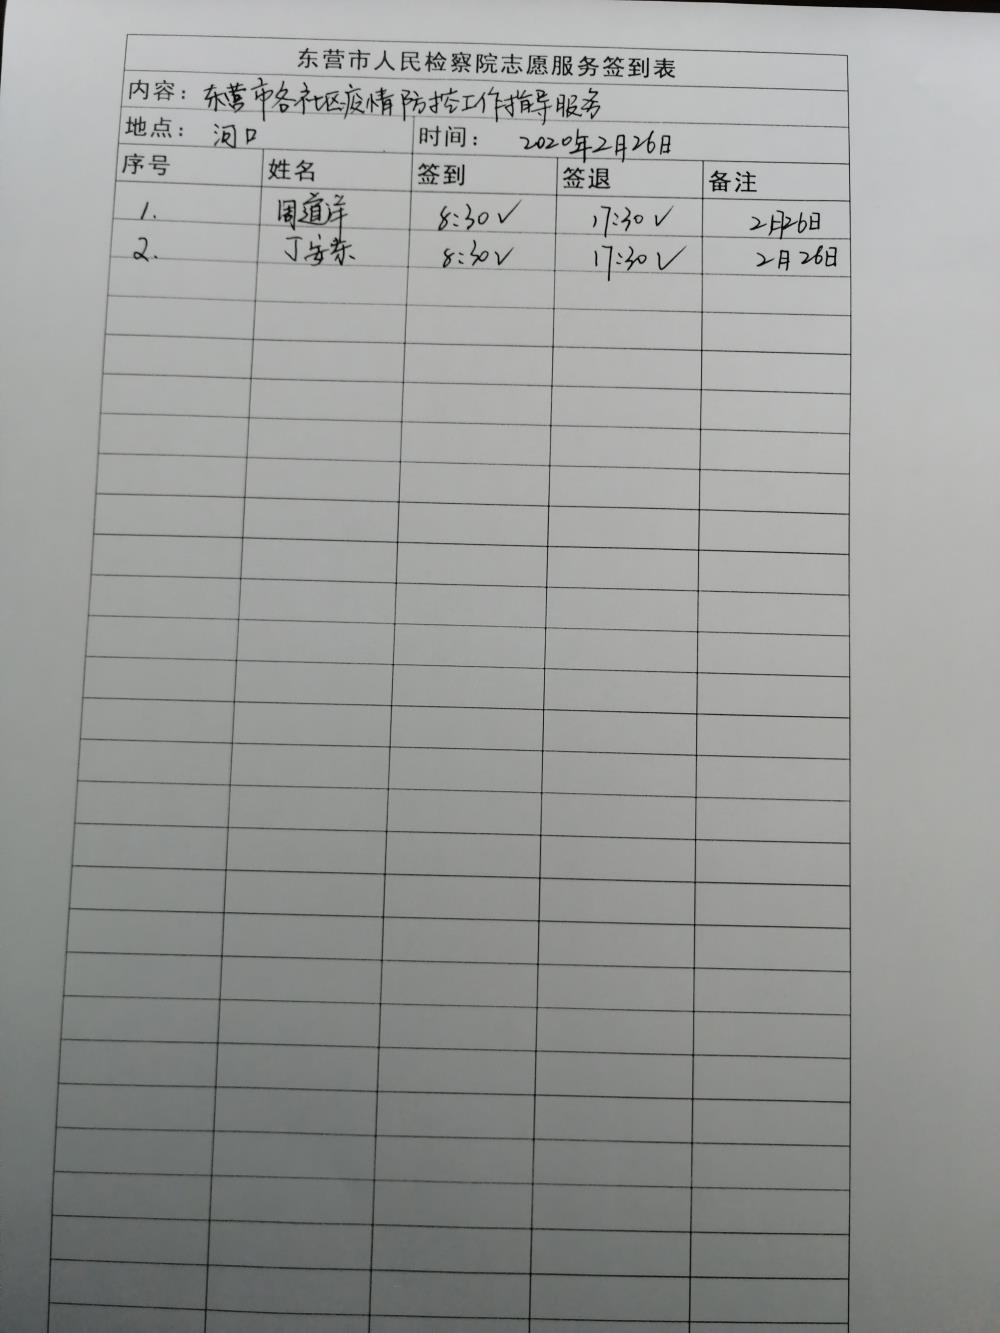 东营市人民检察院志愿服务签到表
内容：东营市各社区疫情防控工作指导服务
地点：河口 时间：2020年2月26日
序号 姓名 签到 签退 备注
1. 周道洋 8:30√ 17:30√ 2月26日
2. 丁安东 8:30√ 17:30√ 2月26日